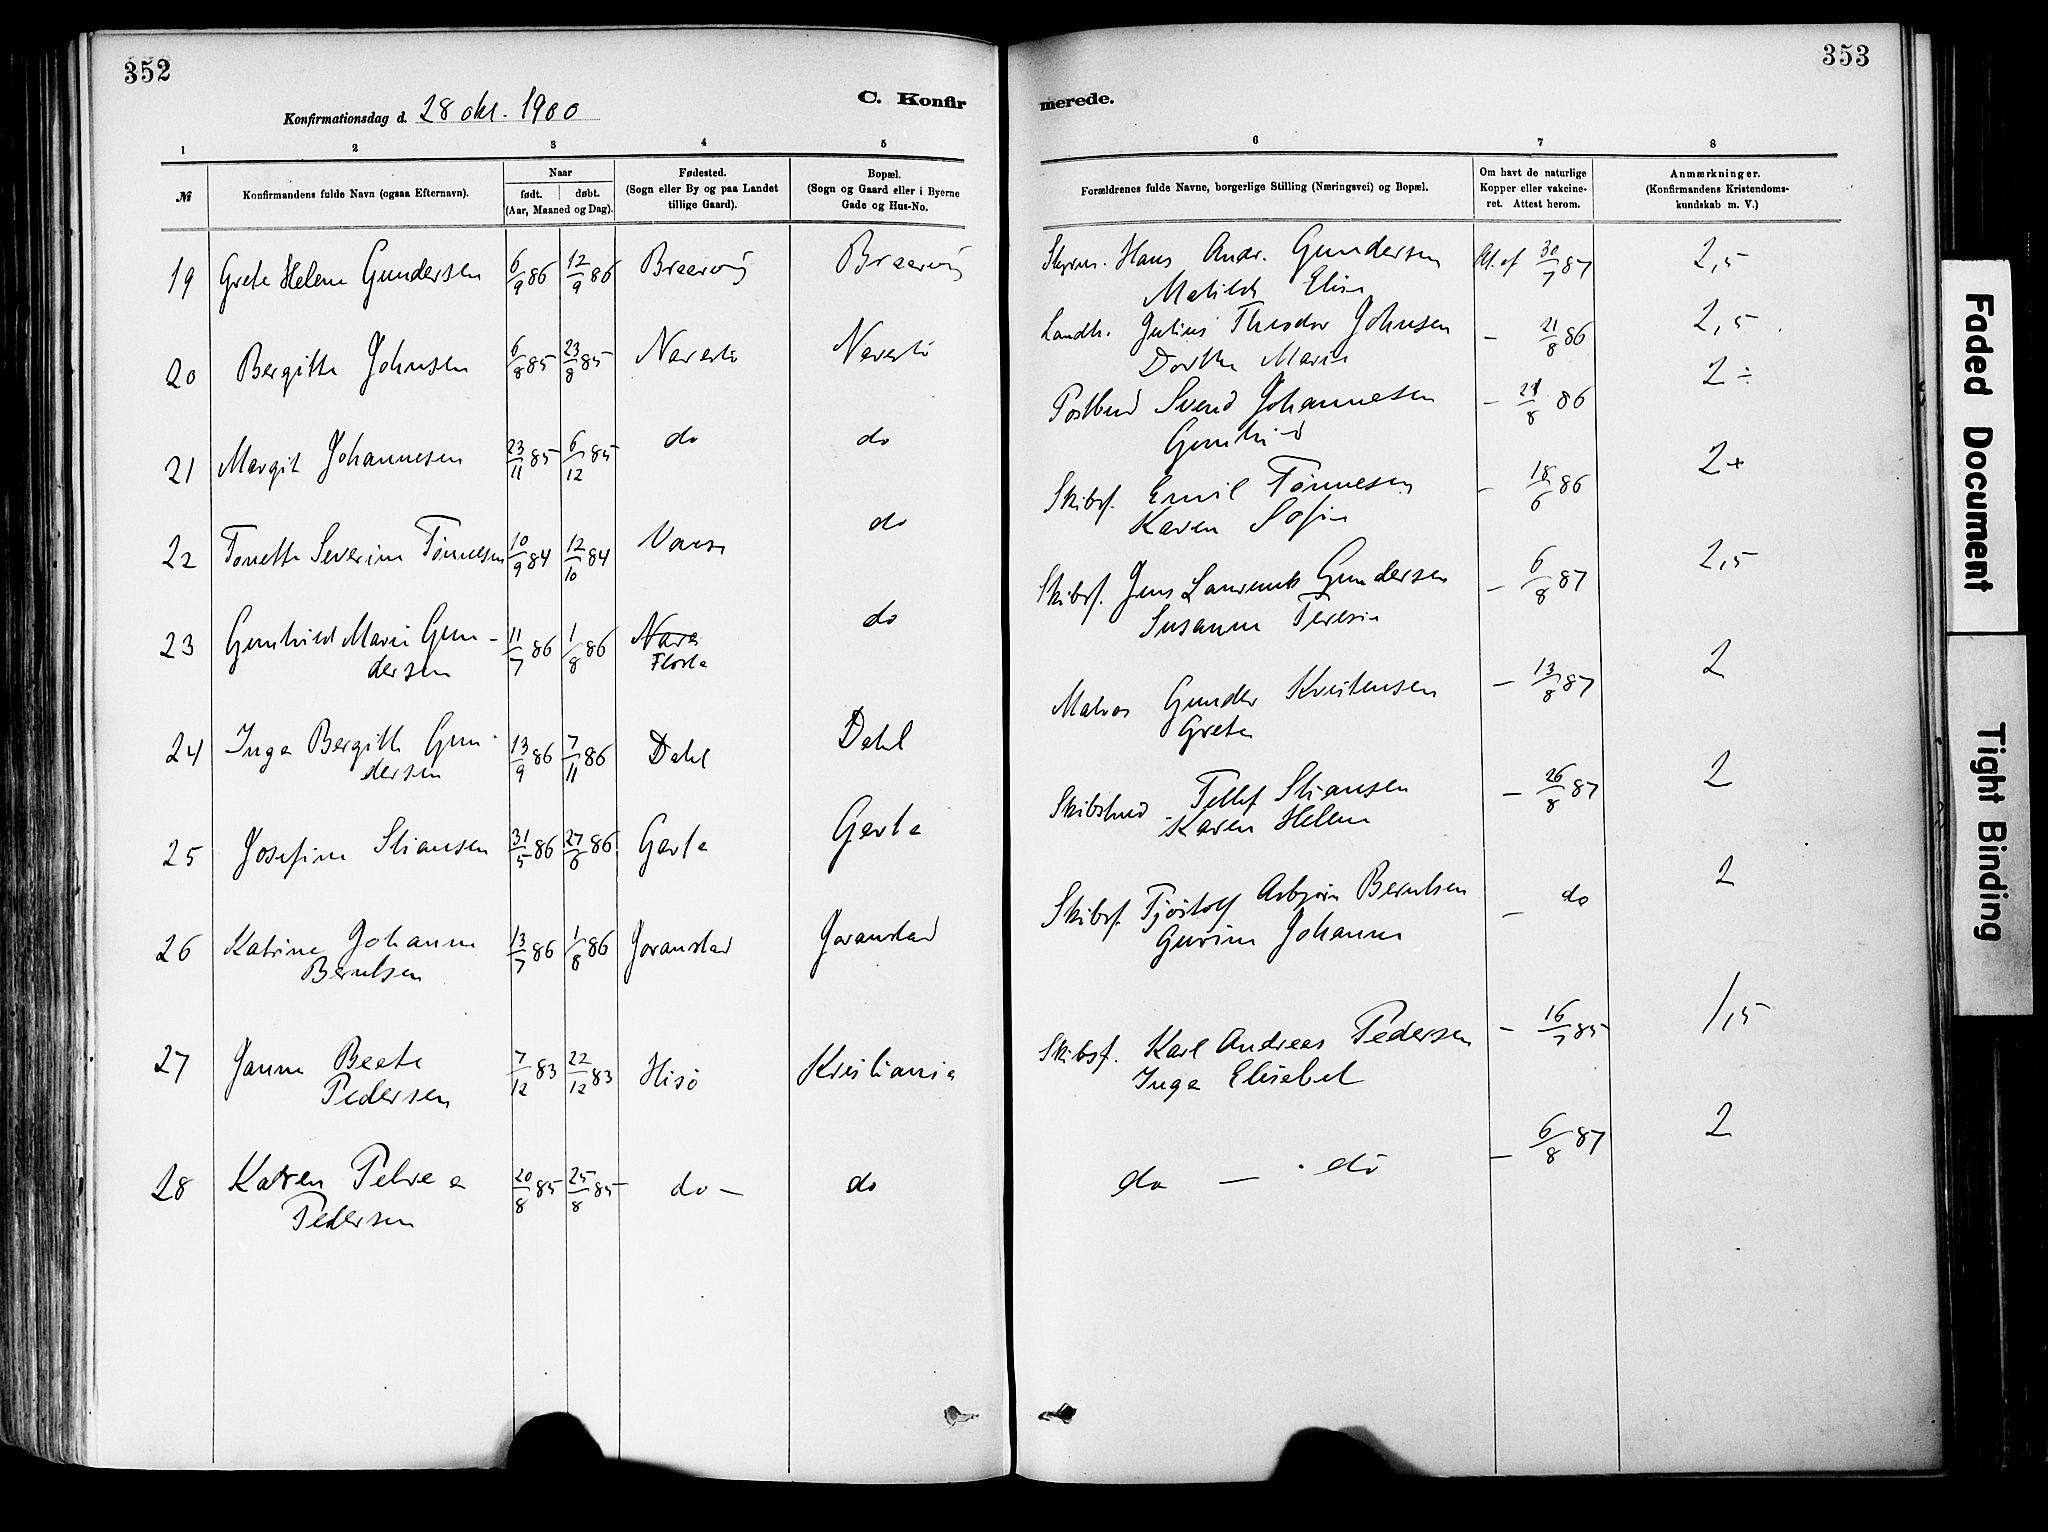 352
353
C. Konfir
merede.
Konfirmationsdag d. 28 okt. 1900
1 2 3 4 5 6 7 8
№
Konfirmandens fulde Navn (ogsaa Efternavn).
Naar
født. døbt.
(Aar, Maaned og Dag).
Fødested.
(Sogn eller By og paa Landet
tillige Gaard).
Bopæl.
(Sogn og Gaard eller i Byerne
Gade og Hus-No.
Forældrenes fulde Navne, borgerlige Stilling (Næringsvei) og Bopæl.
Om havt de naturlige
Kopper eller vakcine-
ret. Attest herom.
Anmærkninger.
(Konfirmandens Kristendoms-
kundskab m. V.)
19 Grete Helene Gundersen 6/9 86 12/9 86 Hans Andr. Gundersen 30/7 87 2,5
Matilde Elise
20 Bergitte Johnsen 6/8 85 23/8 85 Narestø Narestø Landh. Julius Theodor Johnsen – 21/8 86 2,5
Dorthe Marie
21 Margit Johannesen 23/11 85 6/12 85 do do Postbud Svend Johannesen – 21/8 86 2÷
Gunhild
22 Tonette Severine Tønnesen 10/9 84 12/10 84 do Skibsf. Emil Tønnesen – 18/6 86 2+
Karen Sofie
23 Gunhild Marie Gun-
dersen 11/7 86 1/8 86 Nare Flosta do Skibsf. Jens Laurents Gundersen – 6/8 87 2,5
Susanne Teresie
24 Inga Bergitte Gun-
dersen 13/9 86 7/11 86 Dahl Dahl Matros Gunder Kristensen – 13/8 87 2
Grete
25 Josefine Stiansen 31/5 86 27/6 86 Garta Garta Tellef Stiansen – 26/8 87 2
Karen Helene
26 Katrine Johanne
Berntsen 13/7 86 1/8 86 Goranstad Goranstad Skibsf. Tjøstolf Asbjørn Berntsen – do 2
Gurine Johanne
27 Janna Beate
Pedersen 7/12 83 22/12 83 Hisø Kristiania Skibsf. Karl Andreas Pedersen – 16/7 85 1,5
Inga Elisabet
28 Karen Petrea
Pedersen 20/8 85 25/8 85 do – do do — do – 6/8 87 2
Faded Document
Tight Binding